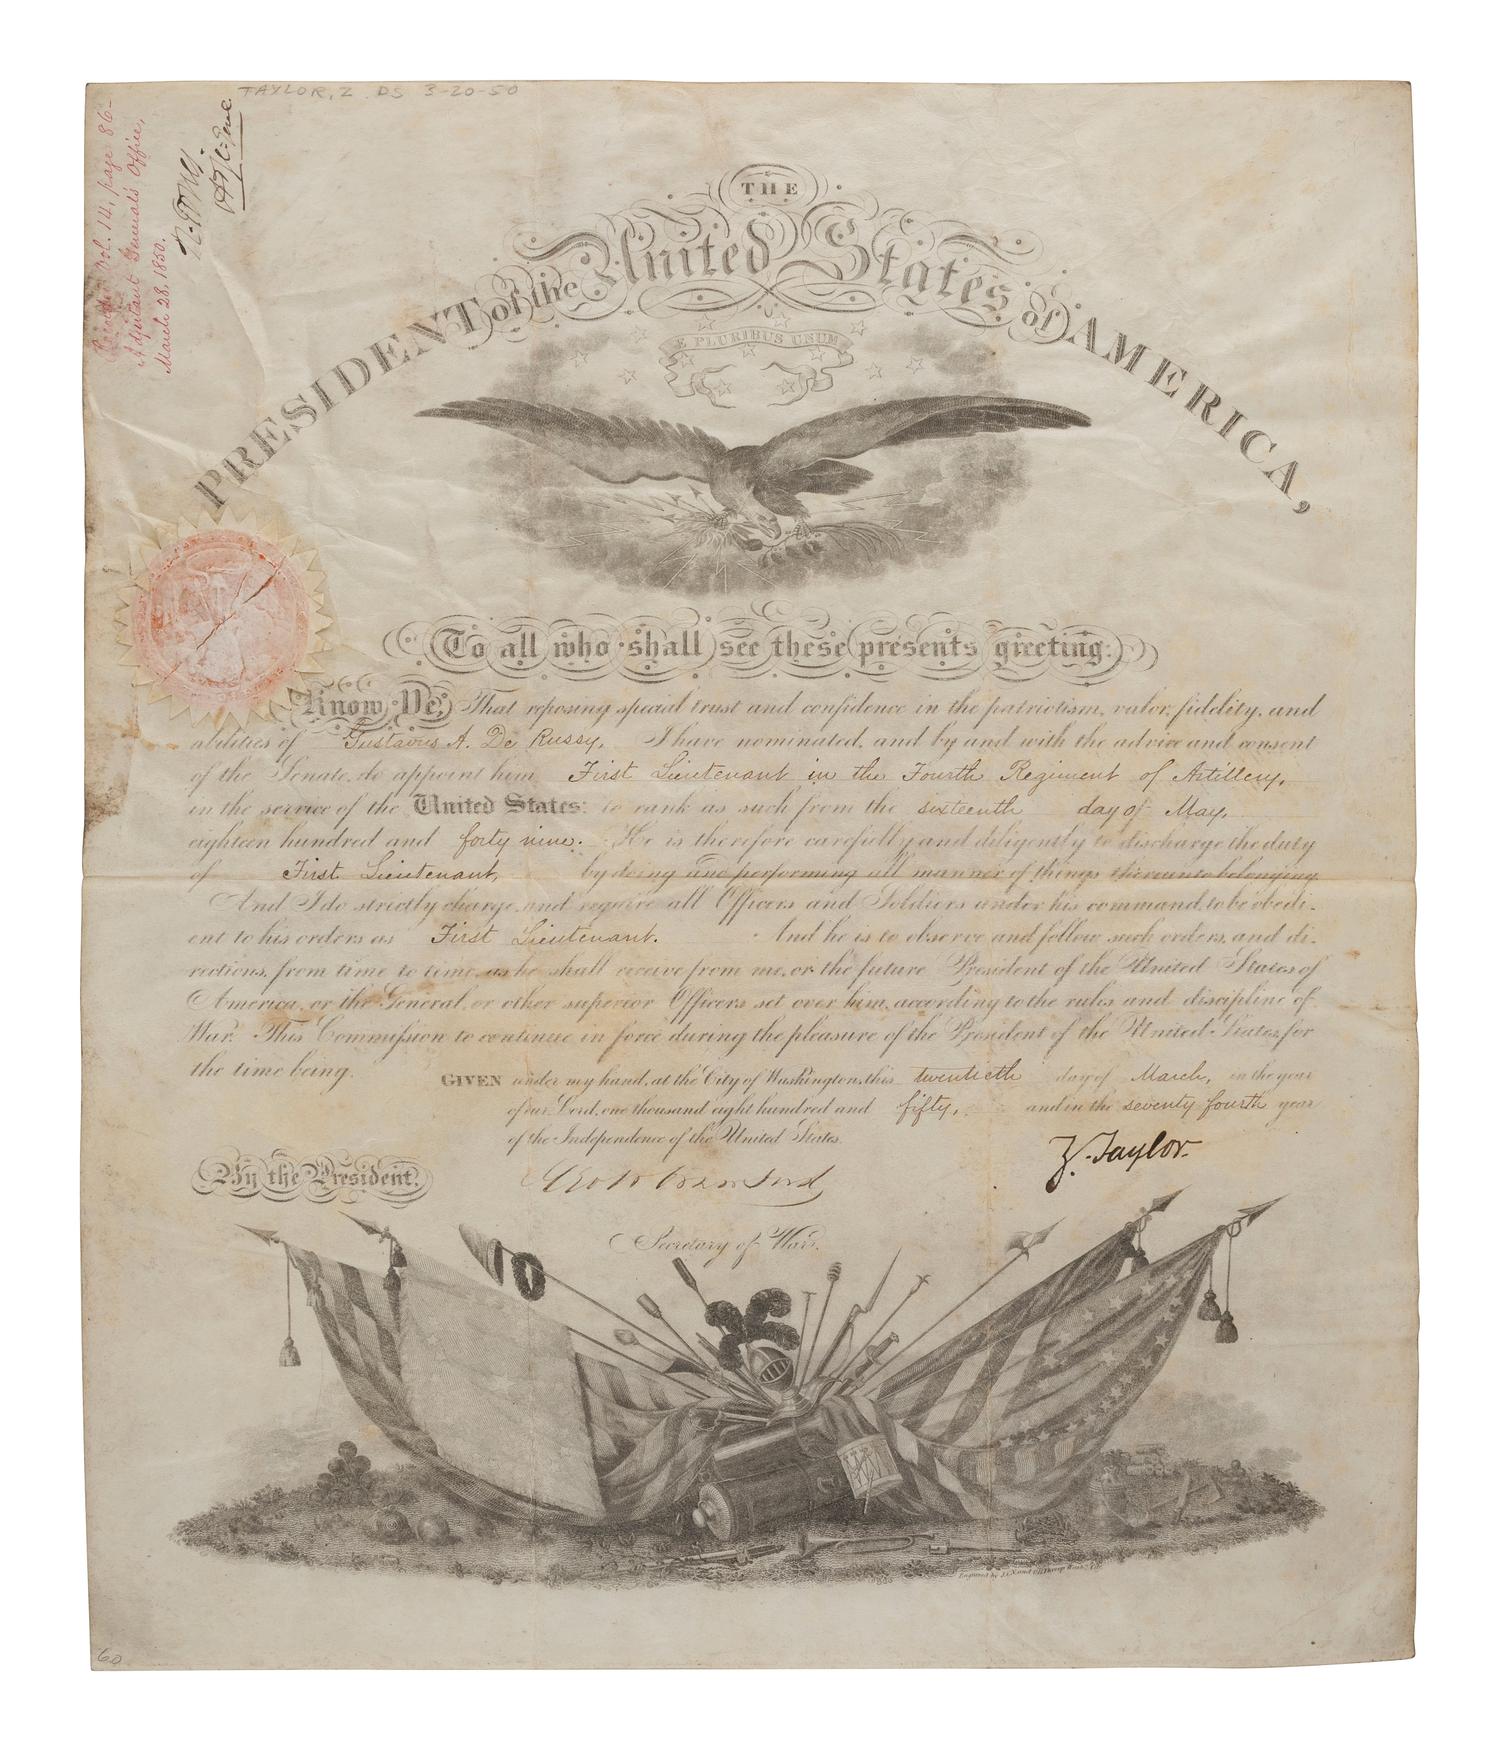 TAYLOR, Z DS 3-20-50
Vol. 14, page 86-
Adjutant General's Office,
March 28, 1850.
THE
PRESIDENT of the United States of AMERICA,
E PLURIBUS UNUM
To all who shall see these presents greeting:
Know Ye, That reposing special trust and confidence in the patriotism, valor, fidelity, and
abilities of Gustavus A. De Russy, I have nominated, and by and with the advice and consent
of the Senate, do appoint him First Lieutenant in the Fourth Regiment of Artillery,
in the service of the United States: to rank as such from the sixteenth day of May,
eighteen hundred and forty nine. He is therefore carefully and diligently to discharge the duty
of First Lieutenant, by doing and performing all manner of things thereunto belonging.
And I do strictly charge, and require all Officers and Soldiers under his command, to be obedi-
ent to his orders as First Lieutenant. And he is to observe and follow such orders, and di-
rections, from time to time, as he shall receive from me, or the future President of the United States of
America, or the General, or other superior Officers set over him, according to the rules and discipline of
War. This Commission to continue in force during the pleasure of the President of the United States, for
the time being.
GIVEN under my hand, at the City of Washington, this twentieth day of March, in the year
of our Lord, one thousand eight hundred and fifty, and in the seventy fourth year
of the Independence of the United States.
Z. Taylor.
By the President.
Geo W Crawford
Secretary of War.
60